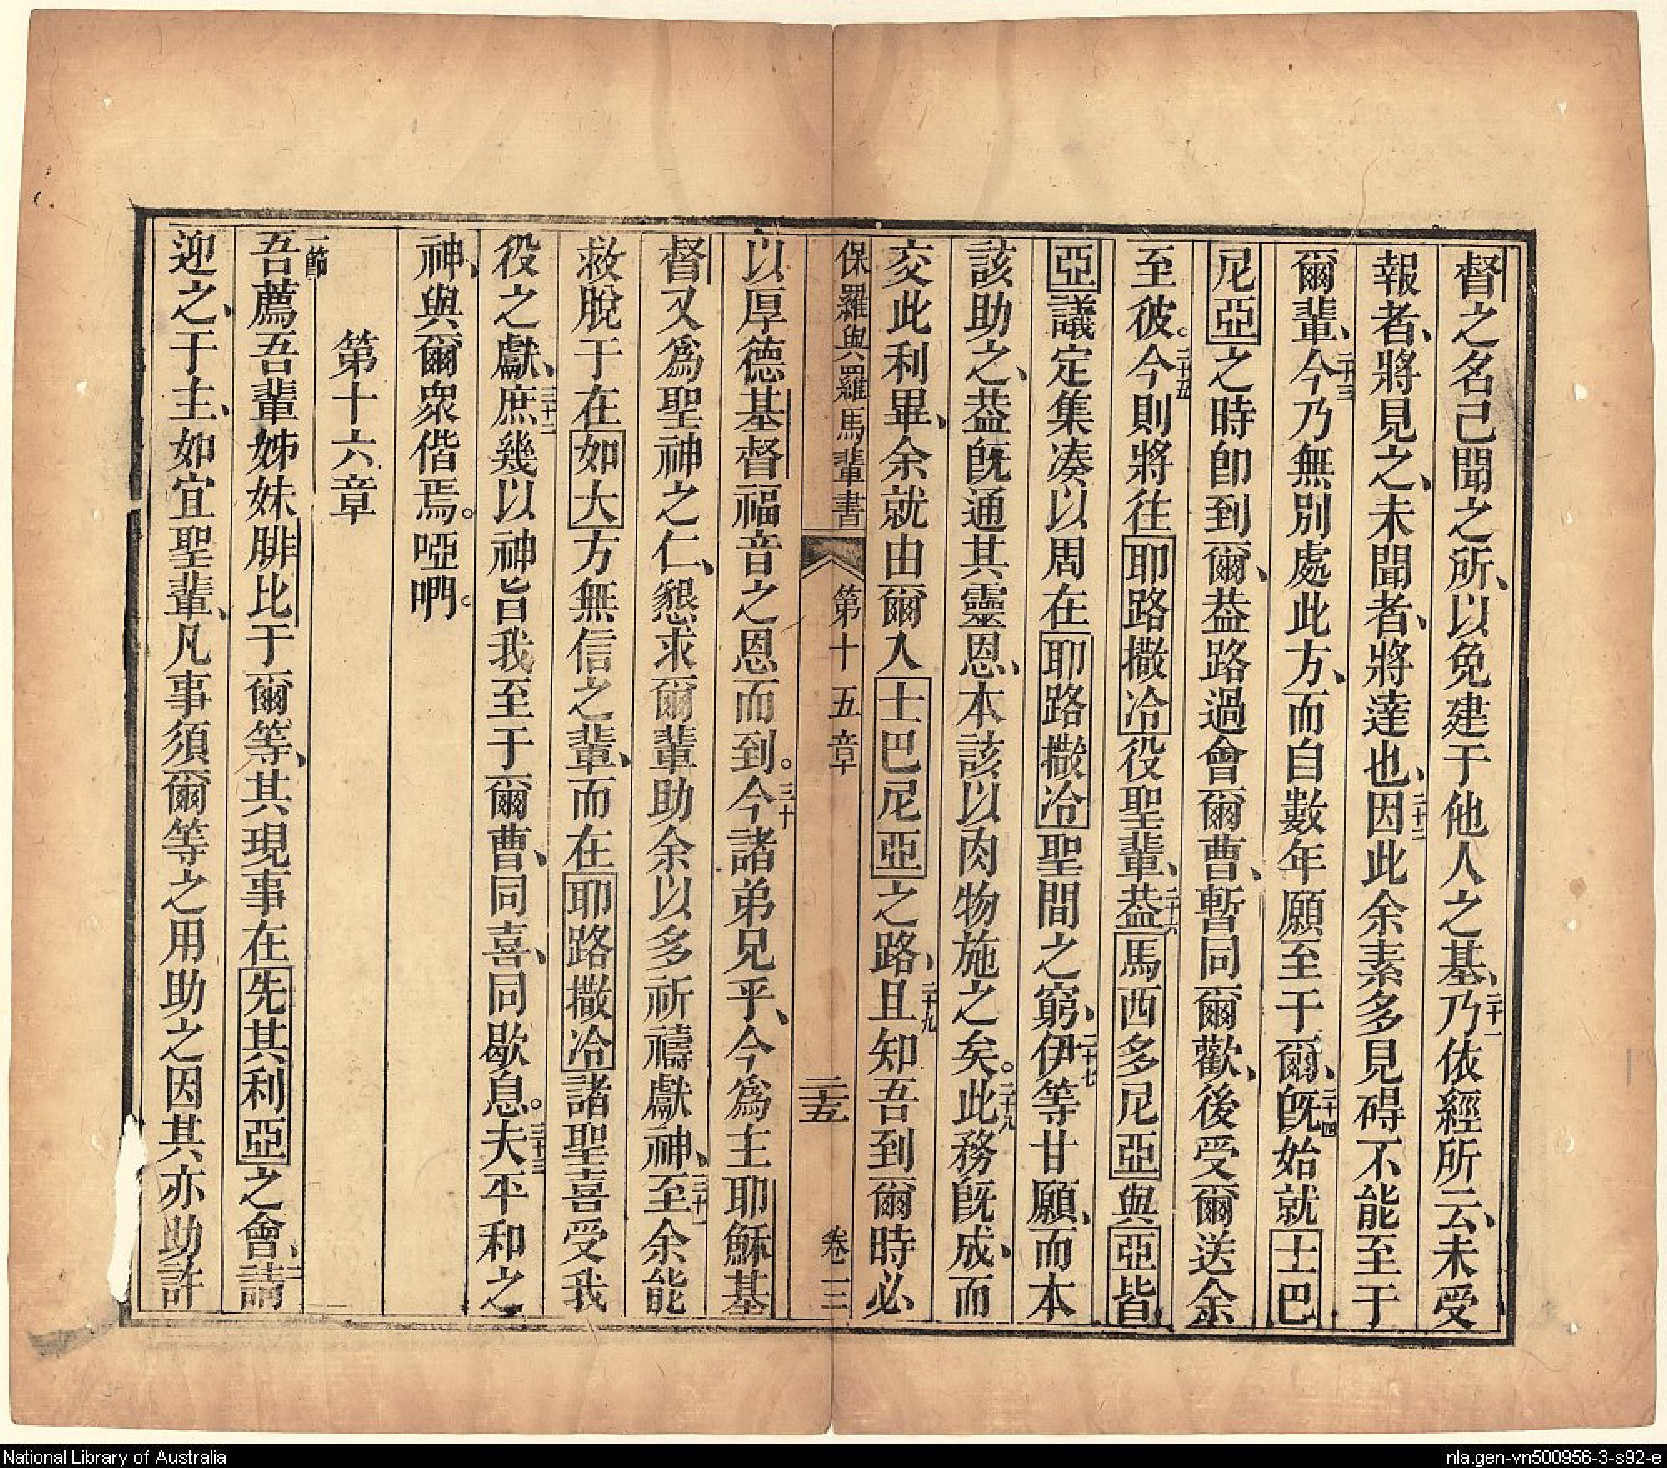 督之名已聞之所、以免建于他人之基、二十一乃依經所云、未受
報者、將見之、未聞者、將達也、二十二因此余素多見碍不能至于
爾輩、二十三今乃無別處此方、而自數年願至于爾、二十四旣始就士巴
尼亞之時卽到爾、葢路過會爾曹、暫同爾歡、後受爾送余
至彼。二十五今則將往耶路撒冾役聖輩、二十六葢馬西多尼亞與亞皆
亞議定集凑以周在耶路撒冾聖間之窮、二十七伊等甘願、而本
該助之、葢旣通其靈恩、本該以肉物施之矣。二十八此務旣成、而
交此利畢、余就由爾入士巴尼亞之路、二十九且知吾到爾時必
保羅與羅馬輩書 第十五章 二十五 卷三
以厚德基督福音之恩而到。三十今諸弟兄乎、今爲主耶穌基
督又爲聖神之仁、懇求爾輩助余以多祈禱獻神、三十一至余能
救脫于在如大方無信之輩、而在耶路撒冾諸聖喜受我
役之獻、三十二庶幾以神旨我至于爾曹、同喜、同歇息。三十三夫平和之
神、與爾眾偕焉。啞們。
第十六章
一節吾薦吾輩姊妹腓比于爾等、其現事在先其利亞之會、二請
迎之、于主、如宜聖輩、凡事須爾等之用助之因其亦助許
National Library of Australia
nla.gen-vn500956-3-s92-e